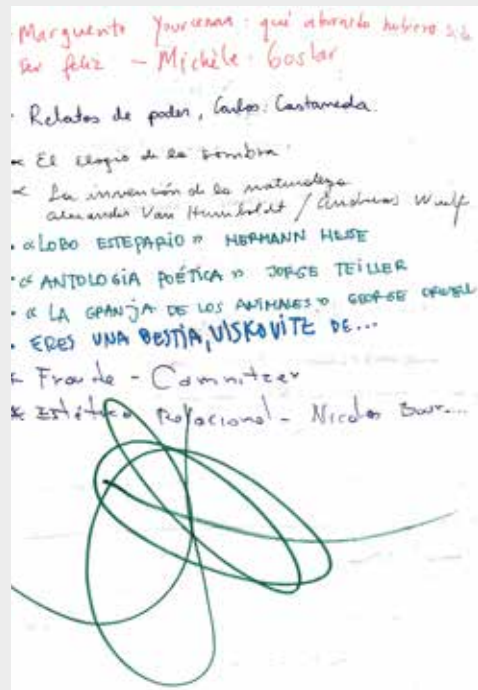 Marguerite Yourcenar: qué aburrido hubiera sido
ser feliz - Michèle Goslar
· Relatos de poder, Carlos Castaneda.
* El elogio de la sombra
* La invención de la naturaleza
Alexander Van Humboldt / Andreas Wulf
· «LOBO ESTEPARIO» HERMANN HESSE
· «ANTOLOGÍA POÉTICA» JORGE TEILLER
· «LA GRANJA DE LOS ANIMALES» GEORGE ORWELL
· ERES UNA BESTIA, VISKOVITZ DE...
* Fraude - Camnitzer
* Estética Relacional - Nicolas Bour...